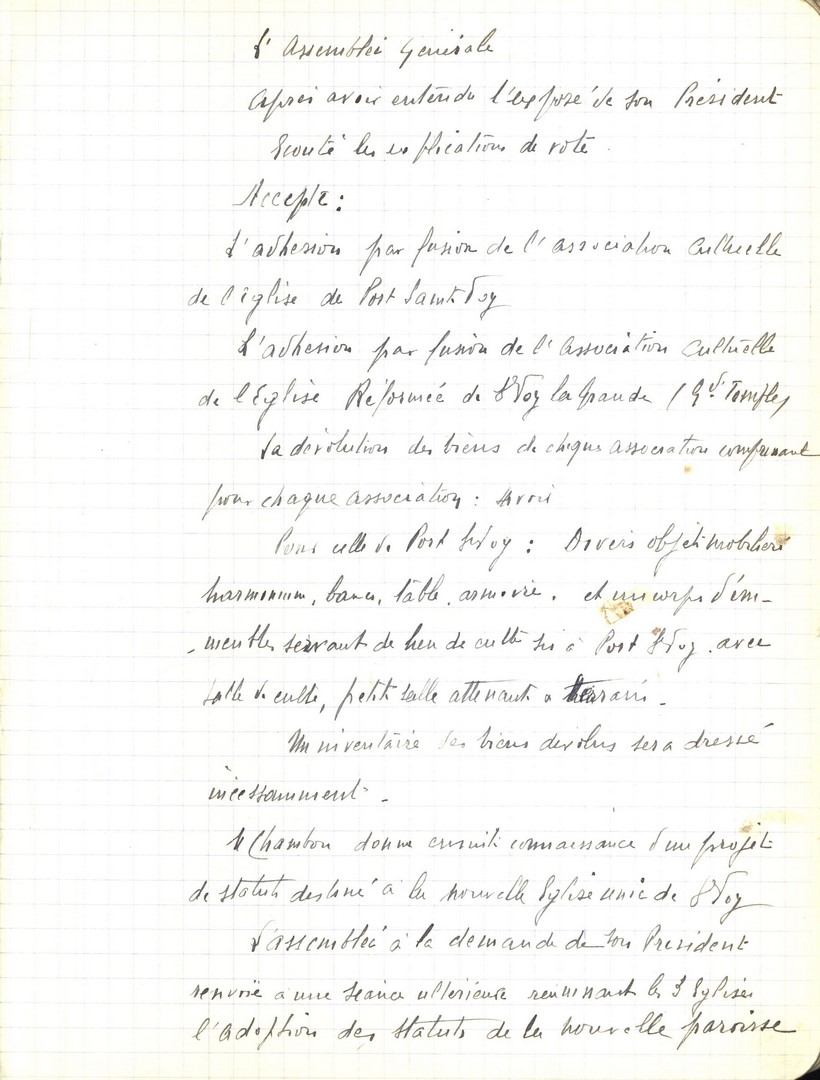 L'Assemblée Générale
Après avoir entendu l'exposé de son Président
Ecouté les explications de vote.
Accepte :
L'adhésion par fusion de l'association Cultuelle
de l'église de Pont Saint Voy
L'adhésion par fusion de l'Association Cultuelle
de l'Eglise Réformée de St Voy la grande (Gd Temple)
La dévolution des biens de chaque association comprenant
pour chaque association : Savoir
Pour celle de Pont St Voy : Divers objets mobiliers
harmonium, bancs, table, armoire. et un corps d'im-
-meubles servant de lieu de culte sis à Pont St Voy. avec
salle de culte, petite salle attenant à terrain.
Un inventaire des biens dévolus sera dressé
incessamment.
Chambon donne ensuite connaissance d'un projet
de statuts destiné à la nouvelle Eglise unie de St Voy
L'assemblée à la demande de son President
renvoie à une séance ultérieure réunissant les 3 Eglises
l'adoption des statuts de la nouvelle paroisse